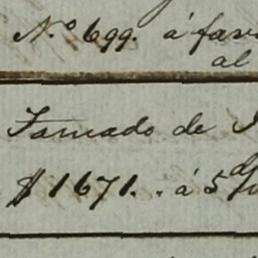 N.º 699. á favo
al
Tomado de
$ 1671. . á 5 d